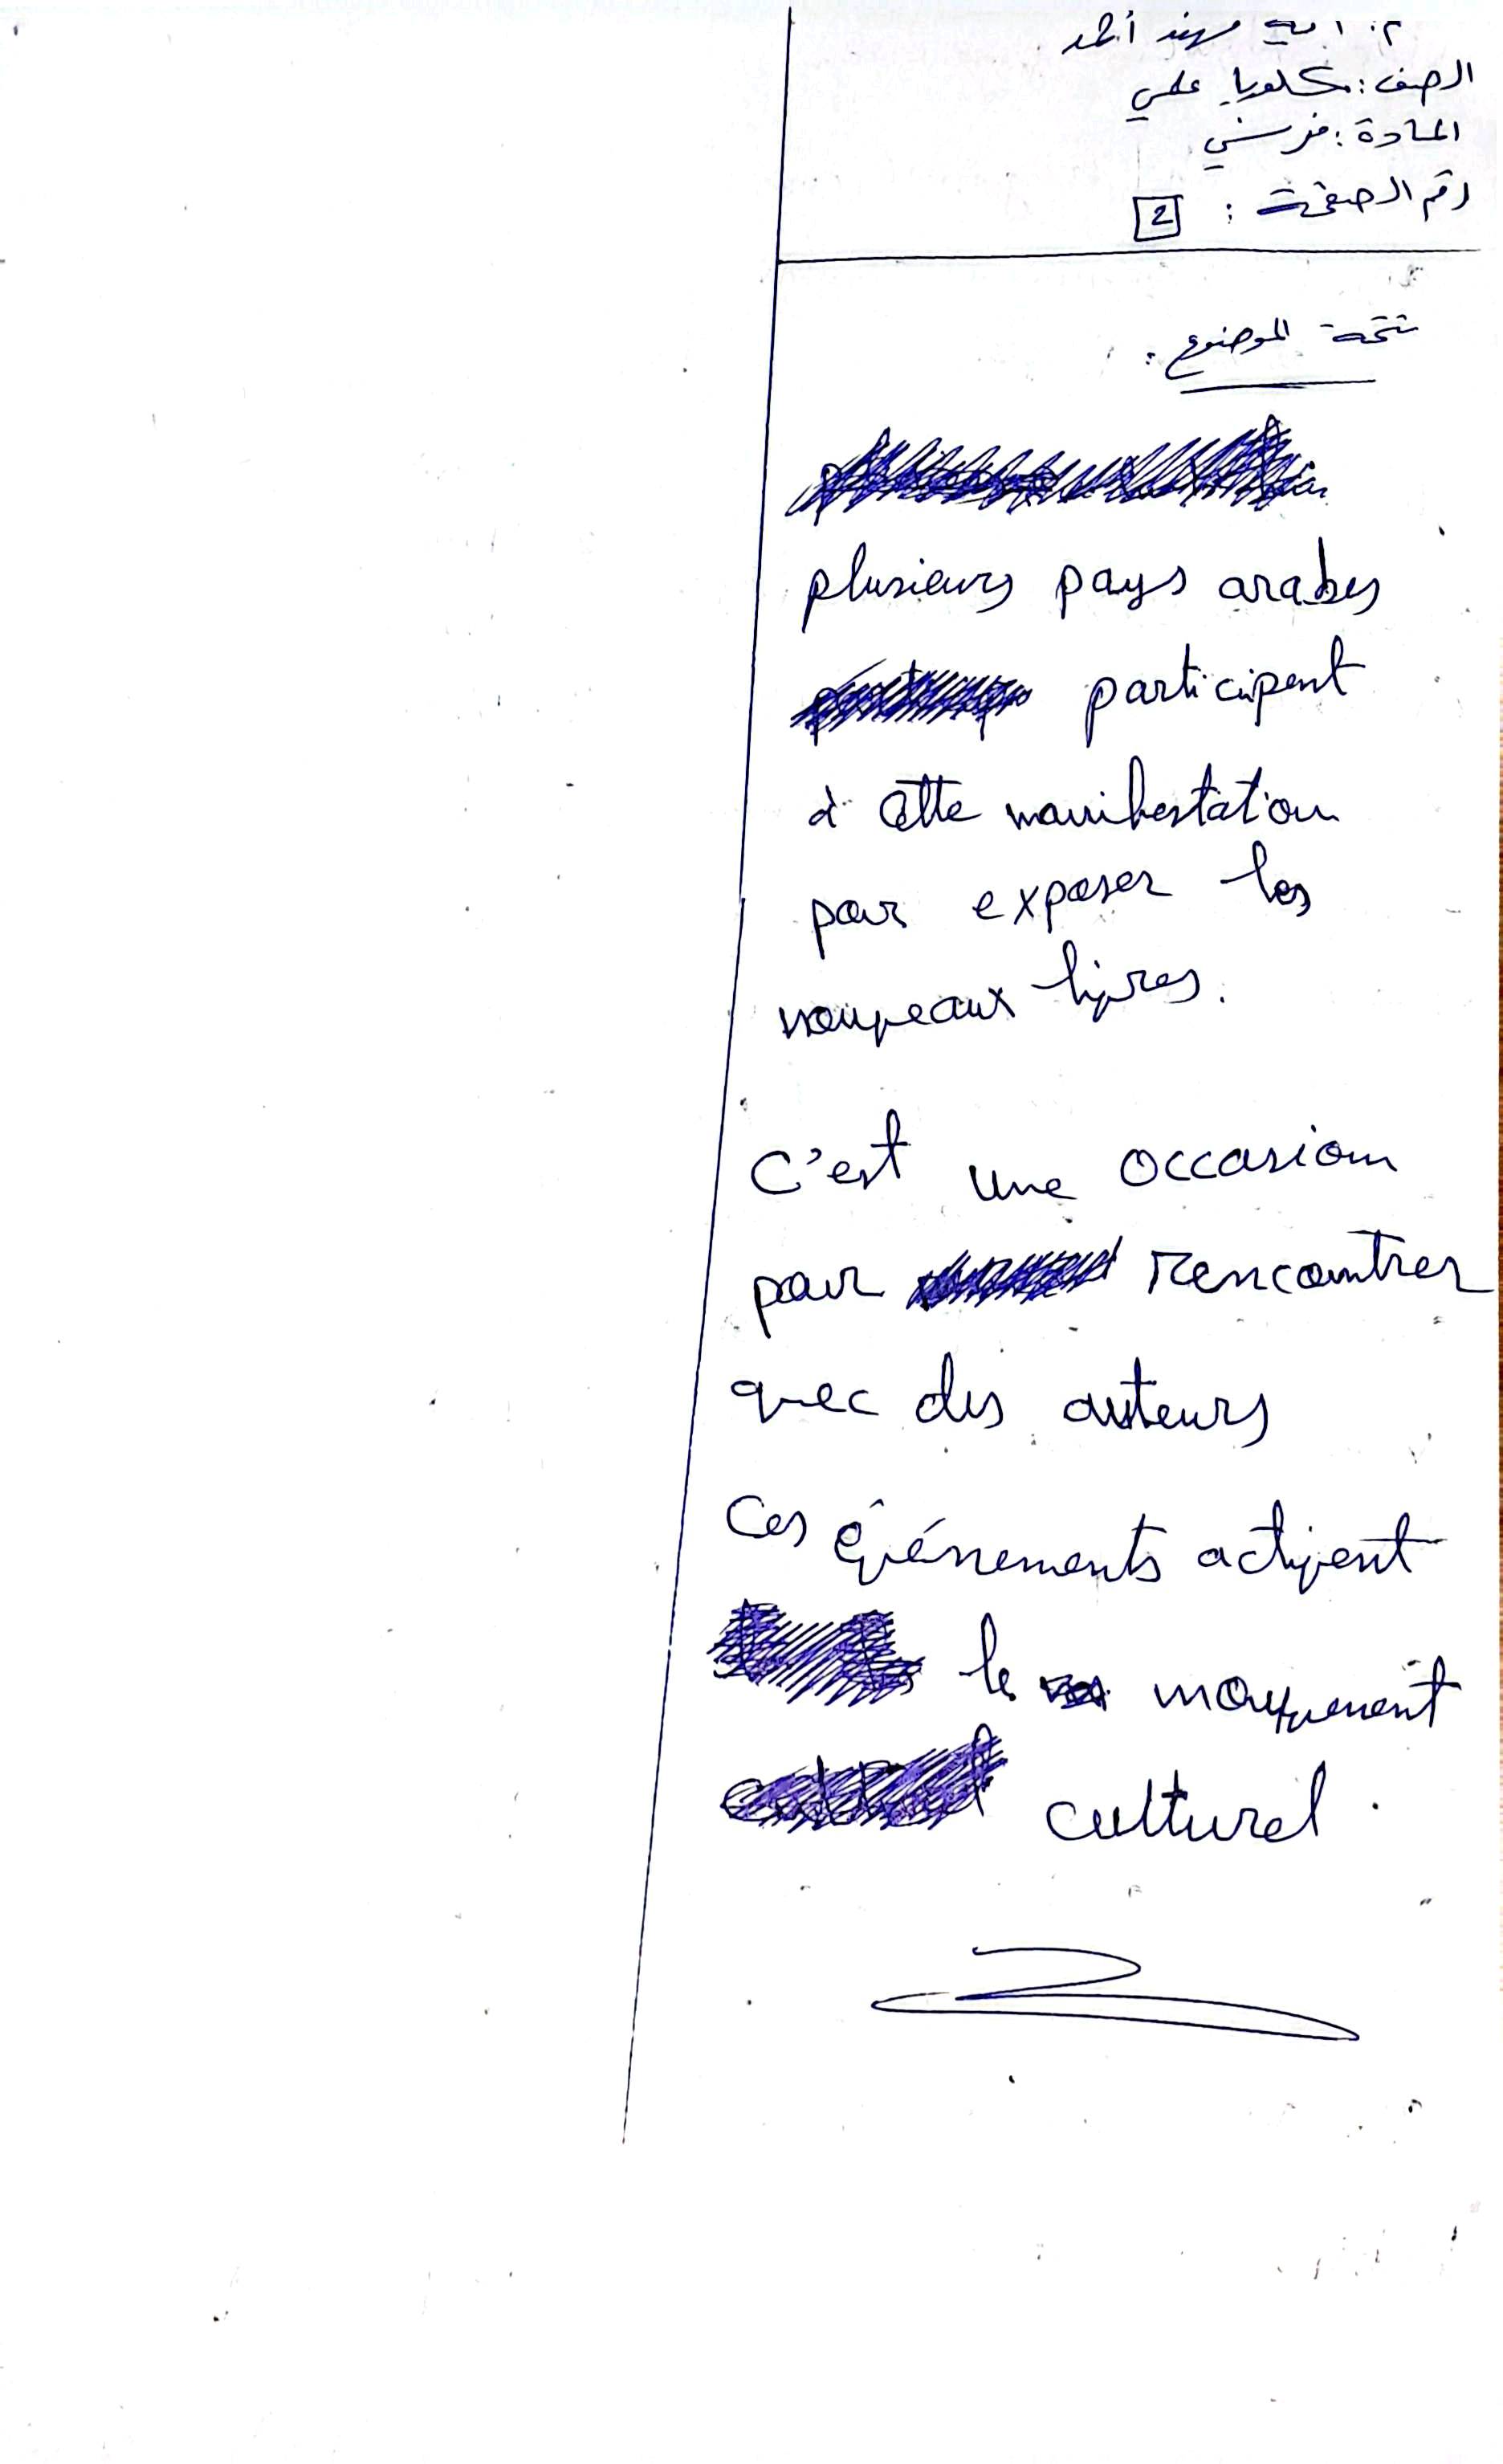 م. آية مهند أحمد
الصف: بكلوريا علمي
المادة: فرنسي
رقم الصفحة: 2
تتمة الموضوع:
plusieurs pays arabes
participent
à cette manifestation
pour exposer les
nouveaux livres.
C'est une occasion
pour rencontrer
avec des auteurs
Ces événements activent
le mouvement
culturel.